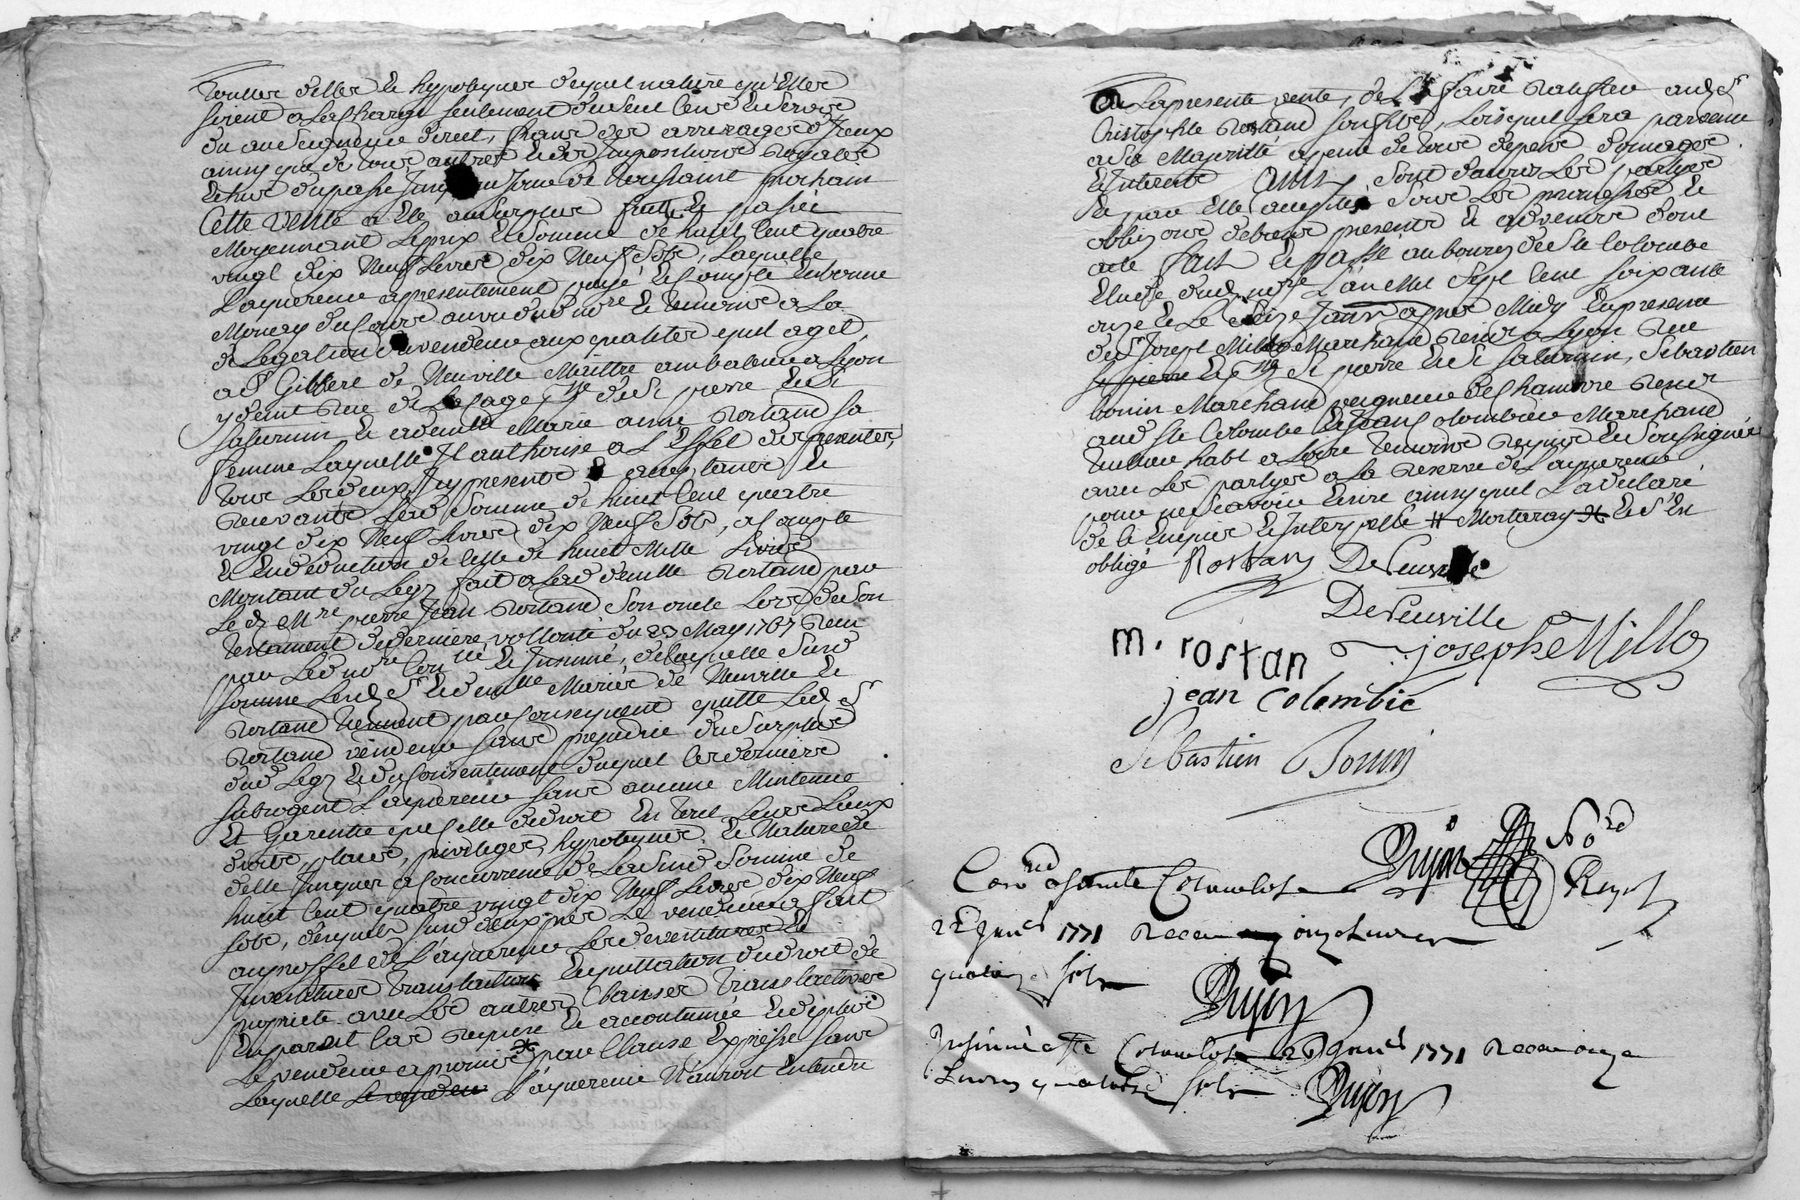 toutes dettes et hypoteques dequel nature qu'elles
soient a la charge seulement du seul cens et servis
du aud seigneur direct, franc des arrerages d'iceux
ainsy que de tous autres et des impositions royales
le tout du passé jusqu'au jour de
Cette vente a eté au surplus faitte et passée
Moyennant le prix et somme de huit cent quatre
vingt dix neuf livres dix neuf sols, laquelle
l'aquereur a presentement payé et compté en bonne
Monoye du cours au vu dud no.re et temoins a la
delegation du vendeur aux qualites quil agit,
a S.r Gilbert de Neuville Maittre a Lyon
y demt rue de la cage p.sse de St pierre et St
saturnin et a demlle Marie anne rostand sa
femme laquelle il authorise a l'effet des presentes,
tous les deux icy presents et acceptants et
recevants lad somme de huit cent quatre
vingt dix neuf livres dix neuf sols, a compte
et en deduction de celle de huit Mille livres
Montant du legs fait a lad demlle rostand par
le d. M.re pierre jean rostand son oncle lors de son
testament de derniere vollonté du 23 May 1767 reçu
par led no.re con.lé et insinué, de laquelle susd
somme lesd. S.r et demlle Mariés de Neuville et
rostand tiennent par consequent quitte led S.r
rostand vendeur sans prejudice du surplus
dud legs et du consentement duquel ces derniers
subrogent l'aquereur sans aucune Maintenue
et garentie quelle de droit en tous leurs lieux
droits, places, privileges, hypoteques et Nature de
dette jusques a concurrence de lad susd somme de
huit cent quatre vingt dix neuf livres dix neuf
sols, desquels susd deux le vendeur a fait
au proffit de l'aquereur les devestitures et
investitures translation et quittation du droit de
proprieté avec les autres clauses translatives
en pareil cas requises et accoutumée et de plus
le vendeur a promis par clause expresse sans
laquelle l'aquereur n'auroit entendu
la presente vente, de la faire ratiffier aud S.r
Cristophle rostand son fils, lorsquil sera parvenu
a sa Majorité a peine de tous depens domages
et interets Ainsi sont d'accord les parties
et par elle accepté sous les promesses et
obligons de biens presents et advenirs dont
acte fait et passé au bourg de Ste Colombe
etude dud no.re l'an Mil sept cent soixante
onze et le seize janv apres Midy en presence
de S.r Joseph Millo Marchand resid.t a Lyon rue
p.sse St pierre et St saturnin, Sebastien
bonin Marchand peigneur de chanvre resid.t
aud Ste Colombe et jean Colombier Marchand
habt a Loire temoins requis et soussignés
avec les parties a la reserve de l'aquereur
pour ne sçavoir ecrire ainsy quil l'a declaré
de ce enquis et interpellé # Morteray # et s'est
obligé Rostan DeNeuville
DeNeuville
m. rostan josephe Millo
jean colombié
Sebastien Bonin
Dujon No.re Royal
Con.lé a sainte Colombe le
22 janvier 1771 Receu onze livres
quatorze sols
Dujon
Insinué a Ste Colombe le 22 janvier 1771 Receu onze
livres quatorze sols Dujon